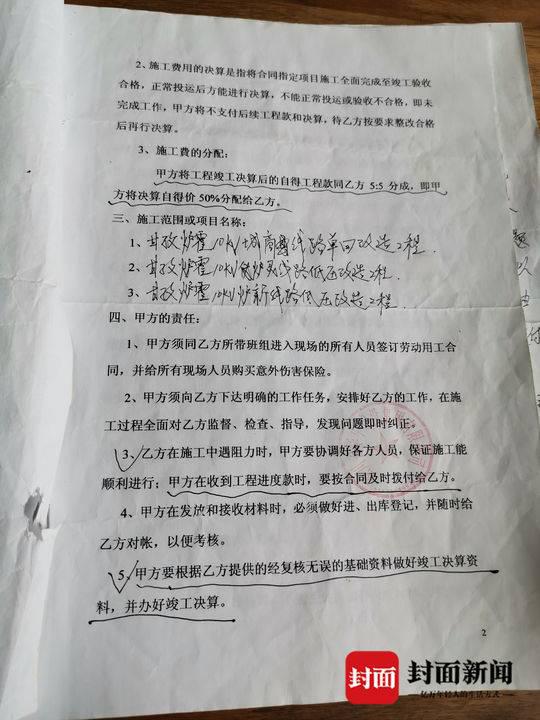 2、施工费用的决算是指将合同指定项目施工全面完成至竣工验收
合格，正常投运后方能进行决算，不能正常投运或验收不合格，即未
完成工作，甲方将不支付后续工程款和决算，待乙方按要求整改合格
后再行决算。
3、施工費的分配：
甲方将工程竣工决算后的自得工程款同乙方 5:5 分成，即甲
方将决算自得价 50%分配给乙方。
三、施工范围或项目名称：
1、甘孜炉霍10KV城 线路单回改造工程.
2、甘孜炉霍10KV 炉 线路低压改造工程.
3、甘孜炉霍10KV炉新线路低压改造工程.
四、甲方的责任：
1、甲方须同乙方所带班组进入现场的所有人员签订劳动用工合
同，并给所有现场人员购买意外伤害保险。
2、甲方须向乙方下达明确的工作任务，安排好乙方的工作，在施
工过程全面对乙方监督、检查、指导，发现问题即时纠正。
3、乙方在施工中遇阻力时，甲方要协调好各方人员，保证施工能
顺利进行；甲方在收到工程进度款时，要按合同及时拨付给乙方。
4、甲方在发放和接收材料时，必须做好进、出库登记，并随时给
乙方对帐，以便考核。
5、甲方要根据乙方提供的经复核无误的基础资料做好竣工决算资
料，并办好竣工决算。
2
题
以
由
付
封面 封面新闻
亿万年轻人的生活方式